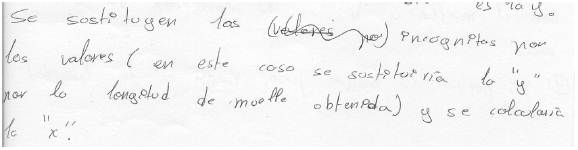 es la y.
Se sustituyen las (valores por) incógnitas por
los valores (en este caso se sustituiría la "y"
por la longitud de muelle obtenida) y se calcularía
la "x".